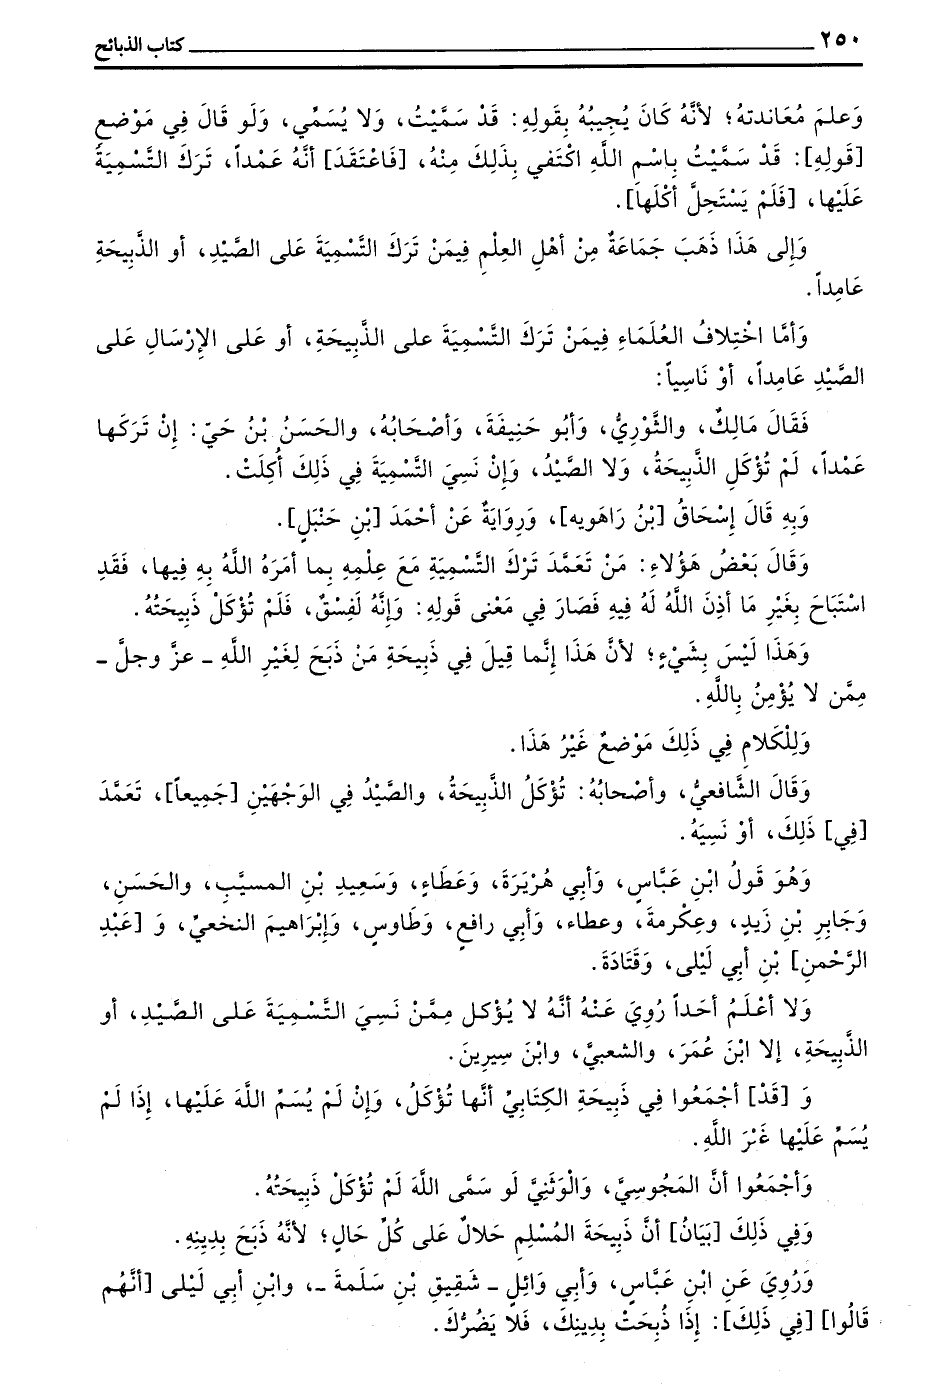 ٢٥٠ كتاب الذبائح
وَعلمَ مُعَاندتهُ؛ لأنَّهُ كَانَ يُجِيبُهُ بِقَولِهِ: قَدْ سَمَّيْتُ، وَلا يُسَمِّي، وَلَو قَالَ فِي مَوْضعِ
[قَولِهِ]: قَدْ سَمَّيْتُ بِاسْمِ اللَّهِ اكْتَفي بِذَلِكَ مِنْهُ، [فَاعْتَقَدَ] أنَّهُ عَمْداً، تَرَكَ التَّسْمِيَةَ
عَلَيْها، [فَلَمْ يَسْتَحِلَّ أكْلَهاَ].
وَإِلى هَذَا ذَهَبَ جَمَاعَةٌ مِنْ أهْلِ العِلْمِ فِيمَنْ تَرَكَ التَّسْمِيَةَ عَلى الصَّيْدِ، أو الذَّبِيحَةِ
عَامِداً.
وَأمَّا اخْتِلافُ العُلَمَاءِ فِيمَنْ تَرَكَ التَّسْمِيَةَ على الذَّبِيحَةِ، أو عَلى الإرْسَالِ عَلى
الصَّيْدِ عَامِداً، أوْ نَاسِياً:
فَقَالَ مَالِكٌ، والثَّوْرِيُّ، وَأبُو حَنِيفَةَ، وَأصْحَابُهُ، والحَسَنُ بْنُ حَيّ: إنْ تَرَكَها
عَمْداً، لَمْ تُؤكَلِ الذَّبِيحَةُ، وَلا الصَّيْدُ، وَإنْ نَسِيَ التَّسْمِيَةَ فِي ذَلِكَ أُكِلَتْ.
وَبِهِ قَالَ إسْحَاقُ [بْنُ رَاهَويه]، وَرِوَايَةٌ عَنْ أحْمَدَ [بْنِ حَنْبَلٍ].
وَقَالَ بَعْضُ هَؤُلاءِ: مَنْ تَعَمَّدَ تَرْكَ التَّسْمِيَةِ مَعَ عِلْمِهِ بِما أمَرَهُ اللَّهُ بِهِ فِيها، فَقَدِ
اسْتَبَاحَ بِغَيْرِ مَا أذِنَ اللَّهُ لَهُ فِيهِ فَصَارَ فِي مَعْنى قَولِهِ: وَإنَّهُ لَفِسْقٌ، فَلَمْ تُؤكَلْ ذَبِيحَتُهُ.
وَهَذَا لَيْسَ بِشَيْءٍ؛ لأنَّ هَذَا إنَّما قِيلَ فِي ذَبِيحَةِ مَنْ ذَبَحَ لِغَيْرِ اللَّهِ ـ عزَّ وجلَّ ـ
مِمَّن لا يُؤْمِنُ بِاللَّهِ.
وَلِلْكَلامِ فِي ذَلِكَ مَوْضعٌ غَيْرُ هَذَا.
وَقَالَ الشَّافعيُّ، وأصْحابُهُ: تُؤْكَلُ الذَّبِيحَةُ، والصَّيْدُ فِي الوَجْهَيْنِ [جَمِيعاً]، تَعَمَّدَ
[فِي] ذَلِكَ، أوْ نَسِيَهُ.
وَهُوَ قَولُ ابْنِ عَبَّاسٍ، وَأبِي هُرَيْرَةَ، وَعَطَاءٍ، وَسَعِيدِ بْنِ المسيَّبِ، والحَسَنِ،
وَجَابِرِ بْنِ زَيدٍ، وعِكْرمةَ، وعطاء، وَأبي رافعٍ، وَطَاوسٍ، وَإبْرَاهيمَ النخعيِّ، وَ [عَبْدِ
الرَّحْمنِ] بْنِ أبي لَيْلى، وَقَتَادَةَ.
وَلا أعْلَمُ أحَداً رُوِيَ عَنْهُ أنَّهُ لا يُؤكل مِمَّنْ نَسِيَ التَّسْمِيَةَ عَلى الصَّيْدِ، أو
الذَّبِيحَةِ، إلا ابْنَ عُمَرَ، والشعبيَّ، وابْنَ سِيرِينَ.
وَ [قَدْ] أجْمَعُوا فِي ذَبِيحَةِ الكِتَابيِّ أنَّها تُؤْكَلُ، وَإنْ لَمْ يُسَمِّ اللَّهَ عَلَيْها، إذَا لَمْ
يُسَمِّ عَلَيْها غَيْرَ اللَّهِ.
وَأجْمَعُوا أنَّ المَجُوسِيَّ، وَالْوَثَنِيَّ لَو سَمَّى اللَّهَ لَمْ تُؤكَلْ ذَبِيحَتُهُ.
وَفِي ذَلِكَ [بَيَانُ] أنَّ ذَبِيحَةَ المُسْلِمِ حَلالٌ عَلى كُلِّ حَالٍ؛ لأنَّهُ ذَبَحَ بِدِينِهِ.
وَرُوِيَ عَنِ ابْنِ عَبَّاسٍ، وَأبي وَائِلٍ ـ شَقِيقِ بْنِ سَلَمةَ ـ، وابْنِ أبي لَيْلى [أنَّهُم
قَالُوا] [فِي ذَلِكَ]: إذَا ذُبِحَتْ بِدِينِكَ، فَلا يَضُرُّكَ.